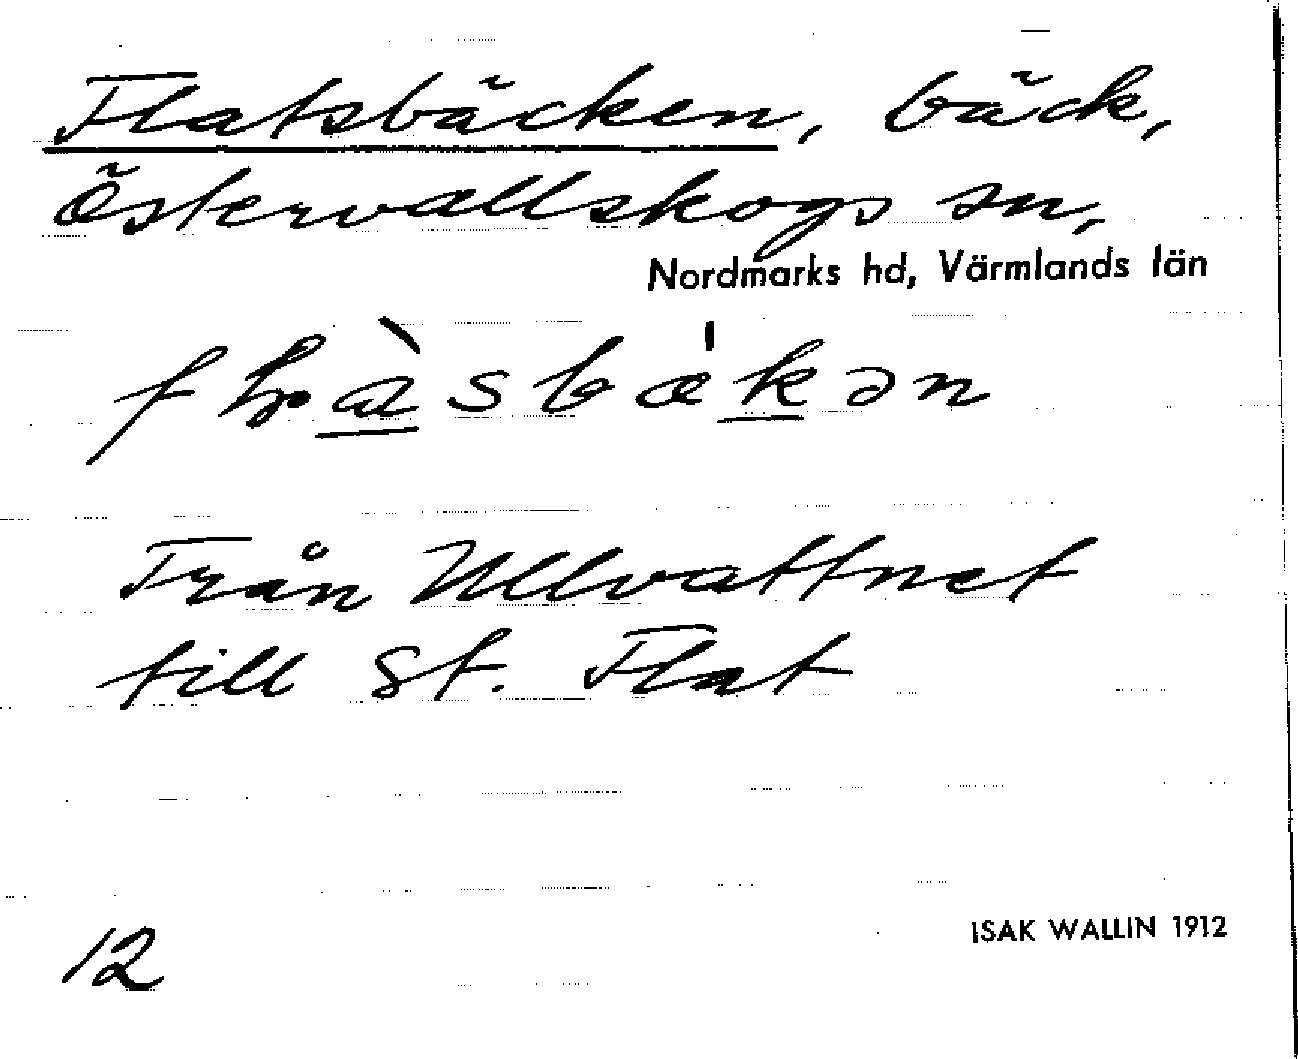 Flatsbäcken, bäck,
Östervallskogs sn,
Nordmarks hd, Värmlands län
Från Ullvattnet
till St. Flat
12
ISAK WALLIN 1912